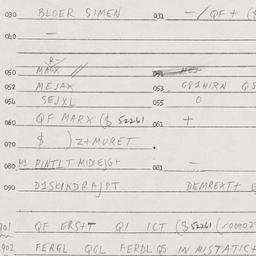 030 BLOER SIMEN 031 -/QF+ ($
040 —
050 MARX
052 MEJAX 053 G81HIRN QS
054 SEJXL 055 0
060 QF MARX ($ 52261 061 +
070 $ ) Z+MURET
080 H1 PINTLT MIDIEJG+ 081 -
090 D1SKINDRAJPT DEMREXT+ E
901 QF ERS+T QI ICT ($ 52261 (
902 FERGL QGL FERDL QS IN MISTATIC+